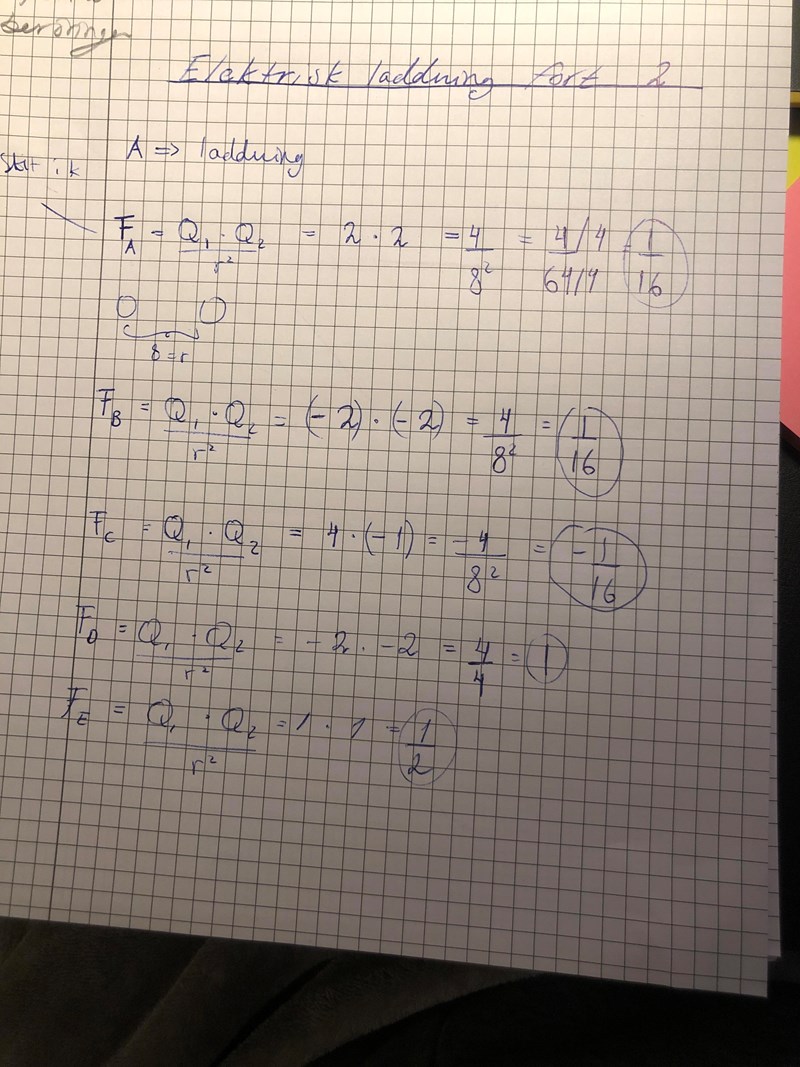 Elektrisk laddning fort 2
A => laddning
F_A = Q₁ · Q₂ / r² = 2 · 2 = 4 / 8² = 4/4 / 64/4 = 1/16
8 = r
F_B = Q₁ · Q₂ / r² = (-2) · (-2) = 4 / 8² = 1/16
F_C = Q₁ · Q₂ / r² = 4 · (-1) = -4 / 8² = -1/16
F_D = Q₁ · Q₂ / r² = -2 · -2 = 4/4 = 1
F_E = Q₁ · Q₂ / r² = 1 · 1 = 1/2